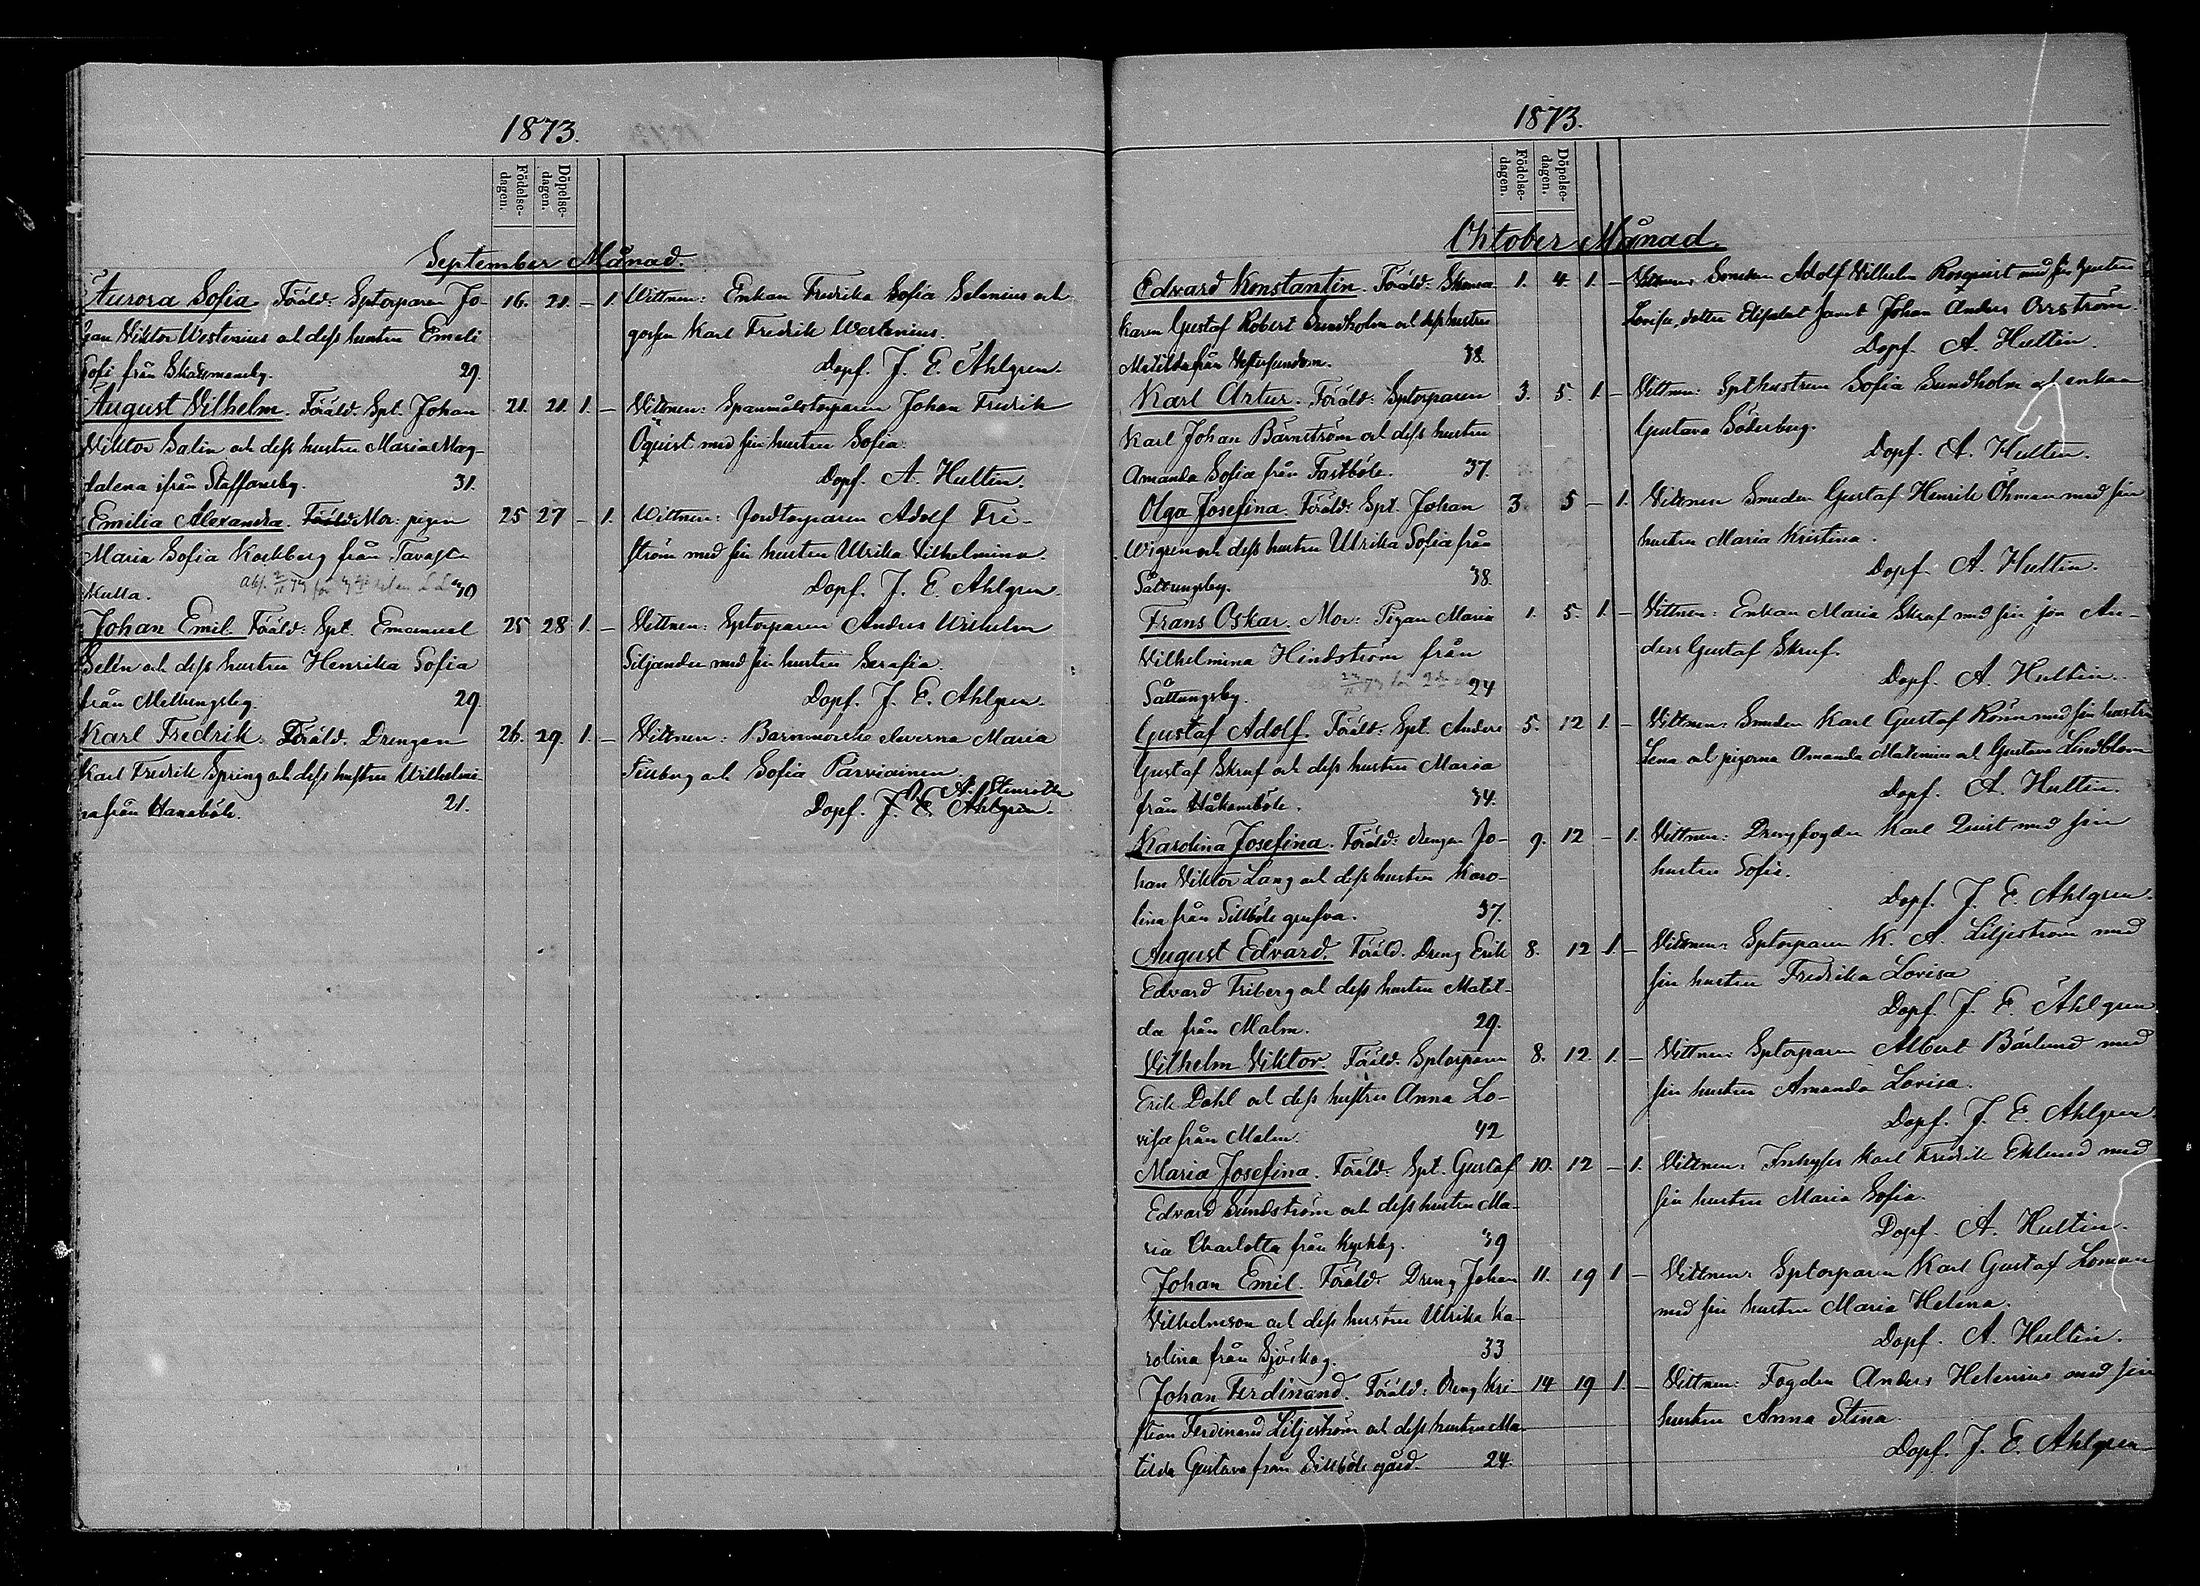 1873.
Födelse-dagen.
Döpelse-dagen.
September Månad.
Aurora Sofia. Föräld: Sptorparen Jo- 16. 21. - 1. Wittnen: Enkan Fredrika Sofia Selenius och
han Viktor Westenius och dess hustru Emeli gossen Karl Fredrik Westenius.
Sofi från Skattmansby. 29. Döpt. J. E. Ahlgren.
August Vilhelm. Föräld. Spt. Johan 21. 21. 1. - Vittnen: Spanmålstorparen Johan Fredrik
Viktor Salin och dess hustru Maria Mag- Öquist med sin hustru Sofia.
dalena ifrån Staffansby. 31. Döpt. A. Hultin.
Emilia Alexandra. Föräld Mor: pigan 25 27 - 1. Wittnen: Jordtorparen Adolf Fri-
Maria Sofia Kockberg från Tavast- ström med sin hustru Ulrika Vilhelmina.
kulla. 40 Döpt. J. E. Ahlgren.
Johan Emil. Föräld: Spt. Emanuel 25 28 1. - Vittnen: Sptorparen Anders Wilhelm
Selin och dess hustru Henrika Sofia Siljander med sin hustru Serafia.
från Mellungsby. 29 Döpt. J. E. Ahlgren.
Karl Fredrik. Föräld. Drengen 26. 29. 1. - Vittnen: Barnmorske eleverna Maria
Karl Fredrik Spring och dess hustru Wilhelmi- Friberg och Sofia Parviainen.
na från Hanaböle. 21. Döpt. J. E. Ahlgren. A. Stenroth
1873.
Födelse-dagen.
Döpelse-dagen.
Oktober Månad.
Edvard Konstantin. Föräld: Skoma- 1. 4. 1. - Vittnen: Adolf Vilhelm Rosqvist med sin hustru
karen Gustaf Robert Sundholm och dess hustru Lovisa, dottren Elisabet samt Johan Anders Orrström.
Matilda från Vestersundom. 38. Döpt. A. Hultin.
Karl Artur. Föräld: Sptorparen 3. 5. 1. - Vittnen: Spthustrun Sofia Sundholm och enkan
Karl Johan Bärnström och dess hustru Gustava Söderberg.
Amanda Sofia från Fastböle. 37. Döpt. A. Hultin.
Olga Josefina. Föräld: Spt. Johan 3. 5 - 1. Vittnen Smeden Gustaf Henrik Öhman med sin
Wigren och dess hustru Ulrika Sofia från hustru Maria Kristina.
Sottungsby. 38. Döpt. A. Hultin.
Frans Oskar. Mor: Pigan Maria 1. 5. 1. - Vittnen: Enkan Maria Skruf med sin son An-
Vilhelmina Hindström från ders Gustaf Skruf.
Sottungsby. 24 Döpt. A. Hultin.
Gustaf Adolf. Föräld: Spt. Anders 5. 12 1. - Vittnen: Smeden Karl Gustaf Rönn med sin hustru
Gustaf Skruf och dess hustru Maria Lena och pigorna Amanda Malenius och Gustava Lindblom
från Håkansböle. 34. Döpt. A. Hultin.
Karolina Josefina. Föräld: drengen Jo- 9. 12 - 1. Vittnen: Drengfogden Karl Quist med sin
han Viktor Lang och dess hustru Karo- hustru Sofia.
lina från Sillböle grufva. 37. Döpt. J. E. Ahlgren.
August Edvard. Föräld. Dreng Erik 8. 12 1. - Vittnen: Sptorparen K. A. Liljeström med
Edvard Friberg och dess hustru Matil- sin hustru Fredrika Lovisa
da från Malm. 29. Döpt. J. E. Ahlgren
Vilhelm Viktor. Föräld. Sptorparen 8. 12. 1. - Vittnen: Sptorparen Albert Bärlund med
Erik Dahl och dess hustru Anna Lo- sin hustru Amanda Lovisa.
visa från Malm. 42 Döpt. J. E. Ahlgren
Maria Josefina. Föräld. Spt. Gustaf 10. 12 - 1. Vittnen: Inhyses Karl Fredrik Eklund med
Edvard Sundström och dess hustru Ma- sin hustru Maria Sofia.
ria Charlotta från Kyrkby. 39 Döpt. A. Hultin.
Johan Emil. Föräld: Dreng Johan 11. 19 1 - Vittnen: Sptorparen Karl Gustaf Loman
Vilhelmson och dess hustru Ulrika Ka- med sin hustru Maria Helena.
rolina från Sjöskog. 33 Döpt. A. Hultin.
Johan Ferdinand. Föräld: Dreng Kri- 14 19 1. - Vittnen: Fogden Anders Helenius med sin
stian Ferdinand Liljeström och dess hustru Ma- hustru Anna Stina.
tilda Gustava från Sillböle gård. 24. Döpt. J. E. Ahlgren